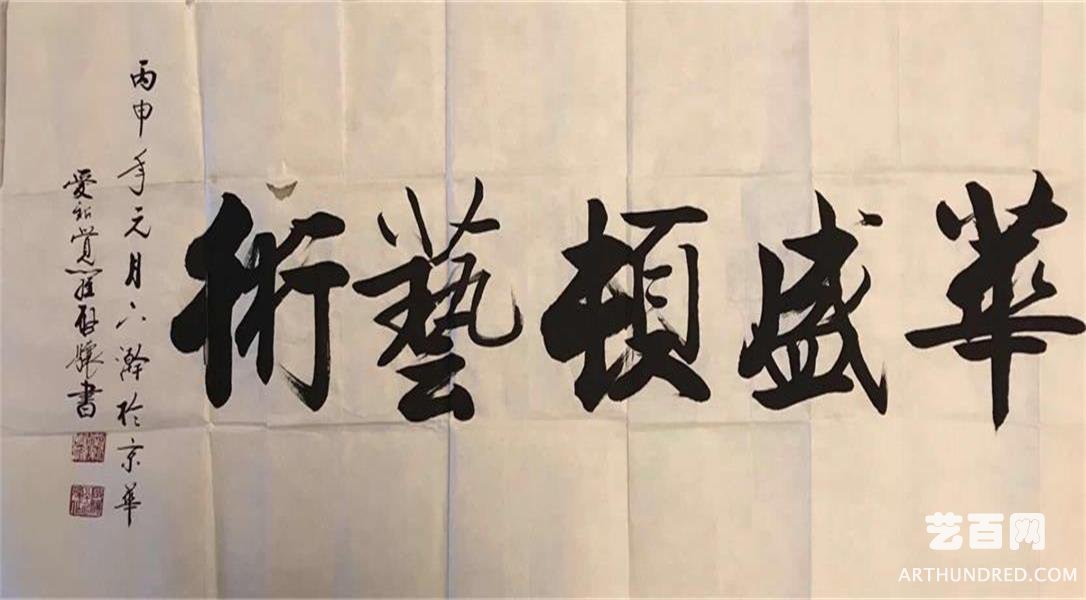 華盛頓藝術
丙申年元月六瀚於京華
愛新覺羅啟驤書
艺百网
ARTHUNDRED.COM